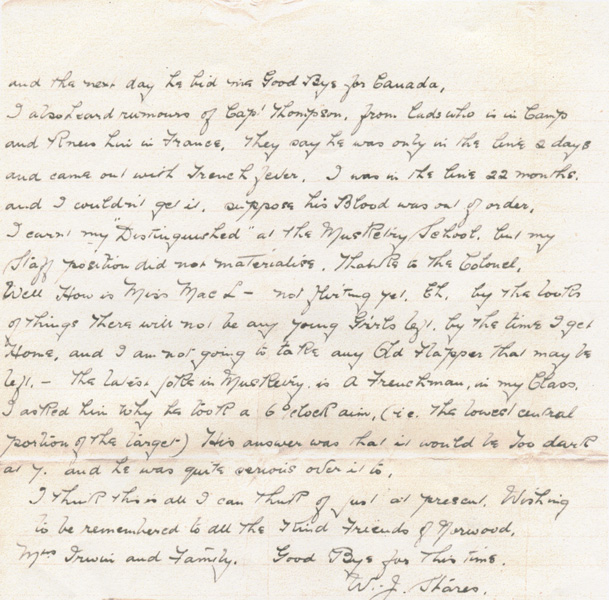 and the next day he bid me Good Bye for Canada,
I also heard rumours of Cap' Thompson, from lads who is in Camp
and Knew him in France. They say he was only in the line 2 days
and came out with Trench fever. I was in the line 22 months.
and I couldn't get it. suppose his Blood was out of order.
I earnt my "Distinguished" at the Musketry School. but my
Staff position did not materialise. Thanks to the Colonel.
Well How is Miss Mac L— not flirting yet. Eh. by the looks
of things there will not be any young Girls left. by the time I get
Home, and I am not going to take any Old Flapper that may be
left. — The latest joke in Musketry. is A Frenchman, in my Class.
I asked him Why he took a 6 O'clock aim, (i.e. The lowest central
portion of the target) His answer was that it would be Too dark
at 7. and he was quite serious over it to.
I think this is all I can think of just at present. Wishing
to be remembered to all the Kind Friends of Norwood.
Mrs Irwin and Family. Good Bye for This time.
W. J. Shares.